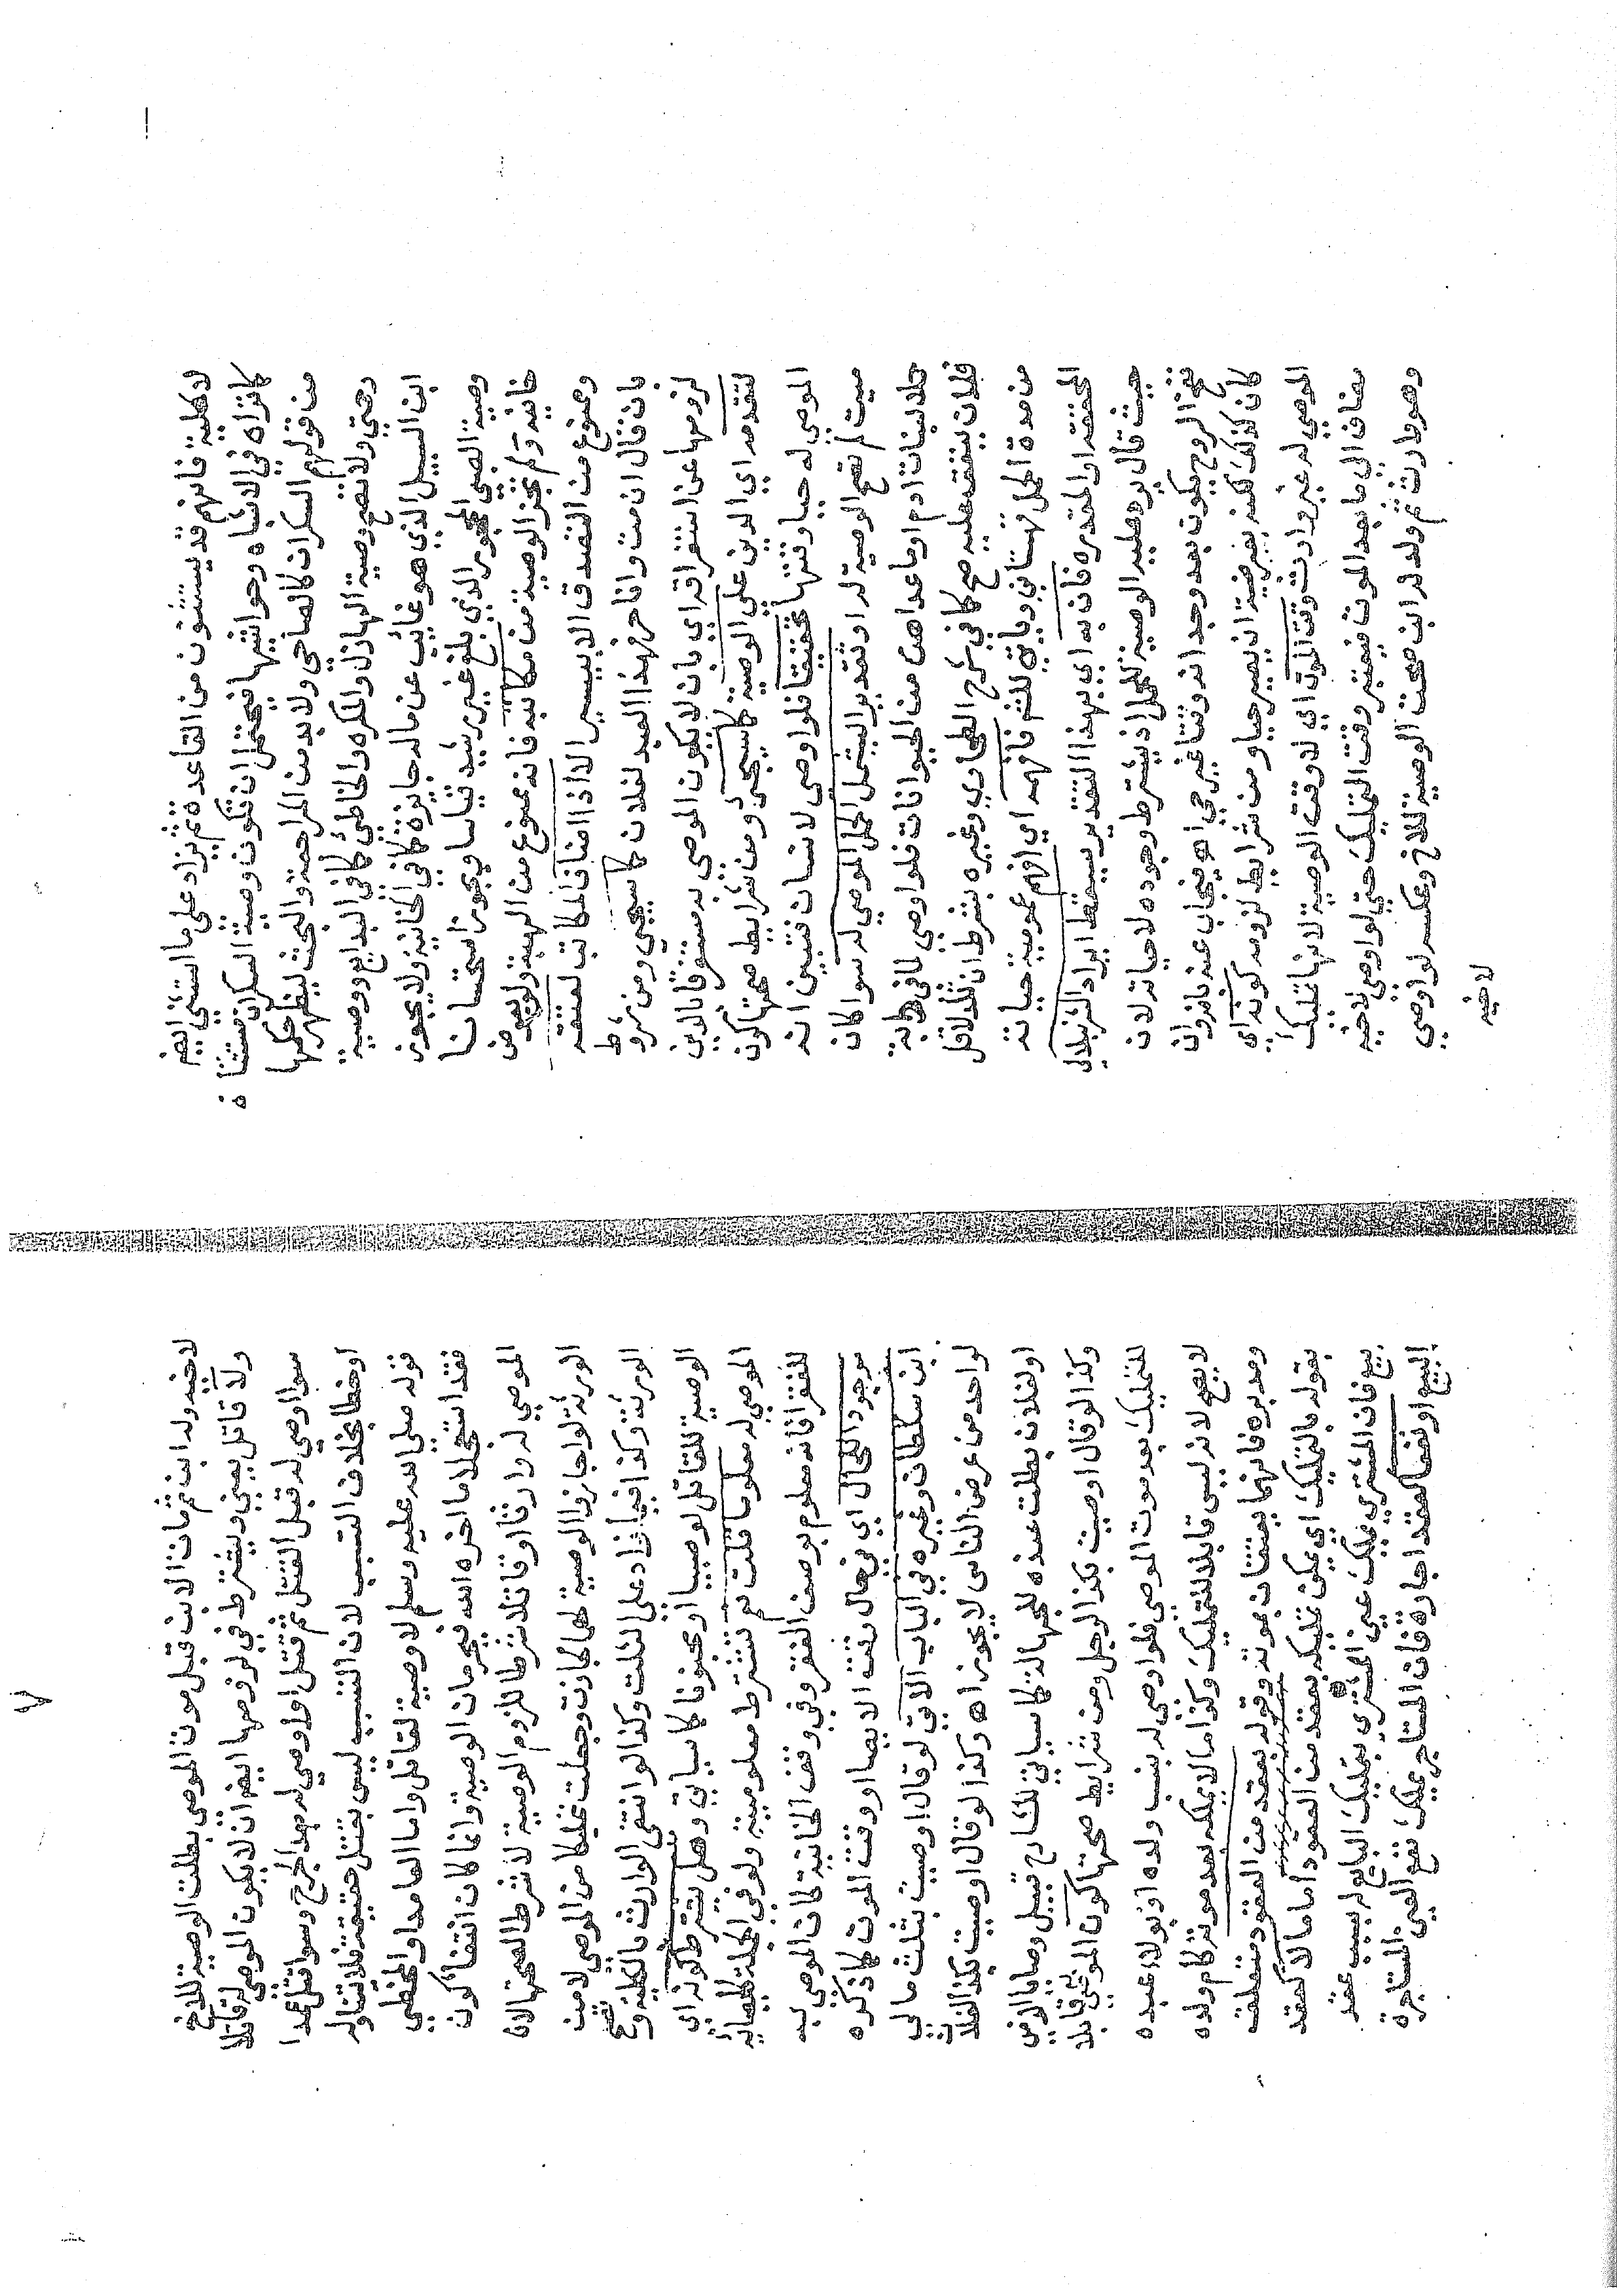 لاهلية فانهم قد يستثنون من القاعدة ثم يزاد على ما استثني ايضا
كما تراه في الاشباه وحواشيها فيحتمل ان تكون وصية السكران مستثناة
من قولهم السكران كالصاحي ولا بد من المراجعة والبحث ليظهر حكمها
وحتي ولا تصح وصية الهازل والمكره والخاطئ كما في البدايع ووصية
ابن السبيل الذي هو غائب عن ماله جايزة كما في الخانية ولا يجوز
وصية الصبي المحجور الذي بلغ غير رشيد قياسا ويجوز استحسانا
خانية ولم يجز الوصية من مكاتبه فانه ممنوع من الهبة ولو بعوض
وممنوع من التصدق الا بيسير الا اذا اضاف المكاتب لعتقه
بان قال ان مت وانا حر فهذا العبد لفلان كما سيجيي ومن شروط
لزومها عن استغراقه اي بان لا يكون الموصي به مستغرقا بالدين
لتقدمه اي الدين على الوصية كما سيجئ ومن شرايط صحتها كون
الموصى له حيا وقتها تحقيقا فلو اوصى لانسان فتبين انه
ميت لم تصح الوصية له او تقديرا ليشمل الحمل الموصي له سوا كان
حملا لبنات ادم او ما عداهن من الحيوانات فلو اوصي لما في بطن دابة
فلان ينفقه عليه صح كما في شرح الطحاوي وغيره بشرط ان تلد لاقل
من مدة الحمل قهستاني وياتي للشم فافهم اي افهم عمومية حياة
المحققة او المقدرة فان به اي بهذا التقدير يسقط ايراد الشرنبلالي
حيث قال يرد عليه الوصية للحمل اذ يشترط وجوده لا حياته لان
نفخ الروح يكون بعد وجدانه وقتا غير حي اه فيجاب عنه بانه وان
كان كذلك لكنه بعرضية ان يصير حيا ومن شرايط لزومه كونه اي
الموصي له غير وارث وقت الموت اي لا وقت الوصية لانها تمليك
مضاف الي ما بعد الموت فيعتبر وقت التمليك حتي لو اوصى لاخيه
وهو وارث ثم ولد له ابن صحت الوصية للاخ وعكسه لو اوصي
لاخيه
لاخيه وله ابن ثم مات الابن قبل موت الموصي بطلت الوصية للاخ
ولا قاتل يعني ويشترط في لزومها ايضا ان لا يكون الموصي له قاتلا
سوا اوصي له قبل القتل ثم قتل او اوصي له بعد الجرح وسوا قتل عمدا
او خطا بخلاف التسبب لان التسبب ليس بقتل حقيقة فلا تتناوله
قوله صلى الله عليه وسلم لا وصية لقاتل واما العامد او المخطي
فقد استعجلا ما اخره الله فيحرمان الوصية وانما كان انتفا كون
الموصي له وارثا او قاتلا شرطا للزوم الوصية لا شرطا لصحتها لان
الورثة لو اجازوا الوصية لهما لجازت وجعلت تمليكا من الموصى لا من
الورثة وكذا فيما زاد على الثلث وكذا لو انتفى الوارث بالكلية وتصح
الوصية للقاتل لو صبيا او مجنونا كما سياتي وهل يشترط كونه اي
الموصي له معلوما قلت نعم تشترط معلوميته ولو في الجملة كالوصايا
للفقرا فانه معلوم بوصف الفقر وفي وقف الخانية كان الموصي به
موجود الحال اي في حال وقت الايصا او وقت الموت كما ذكره
ابن سلطان وغيره في الباب الاتي لو قال اوصيت بثلث مالي
لواحد من عرض الناس لا يجوز اه وكذا لو قال اوصيت بكذا لفلان
او لفلان بطلت عنده للجهالة كما سياتي للشارح قبيل وصايا الذمي
وكذا لو قال اوصيت بكذا لرجل ومن شرايط صحتها كون الموصي به قابلا
للتمليك بعد موت الموصي فلو اوصى له بنسب ولده او بولاء عبده
لا يصح لانه ليس قابلا للتمليك وكذا ما لا يملك بعد موته كام ولده
ومدبره فانهما يعتقان بموته وقوله بعقد من العقود متعلق
بقوله بالتمليك اي يمكن تمليكه بعقد من العقود اما مالا كعقد
بيع فان المشتري يملك عين المشتري بتمليك البايع له بسبب عقد
البيع او نفعا كعقد اجارة فان المستاجر يملك نفع العين المستاجرة